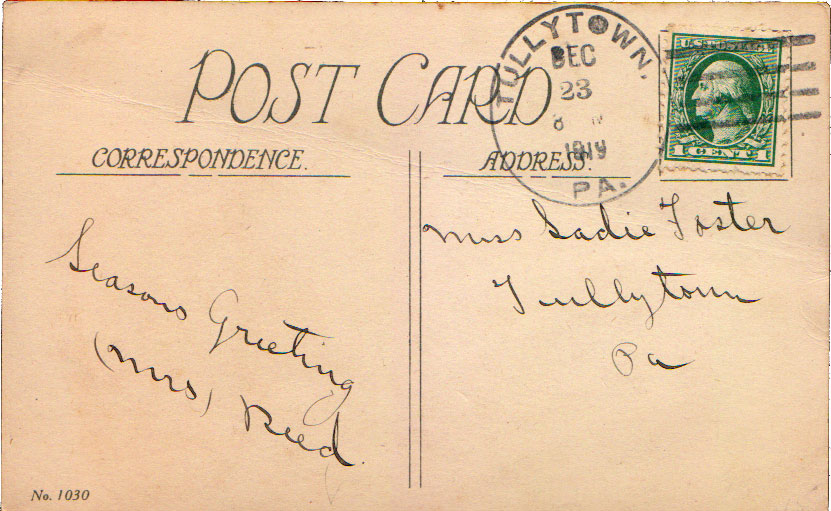 POST CARD
CORRESPONDENCE.
ADDRESS.
TULLYTOWN.
DEC
23
8
1919
PA.
U.S. POSTAGE
1 CENT 1
Miss Sadie Foster
Tullytown
Pa
Seasons Greeting
(Mrs) Reed
No. 1030